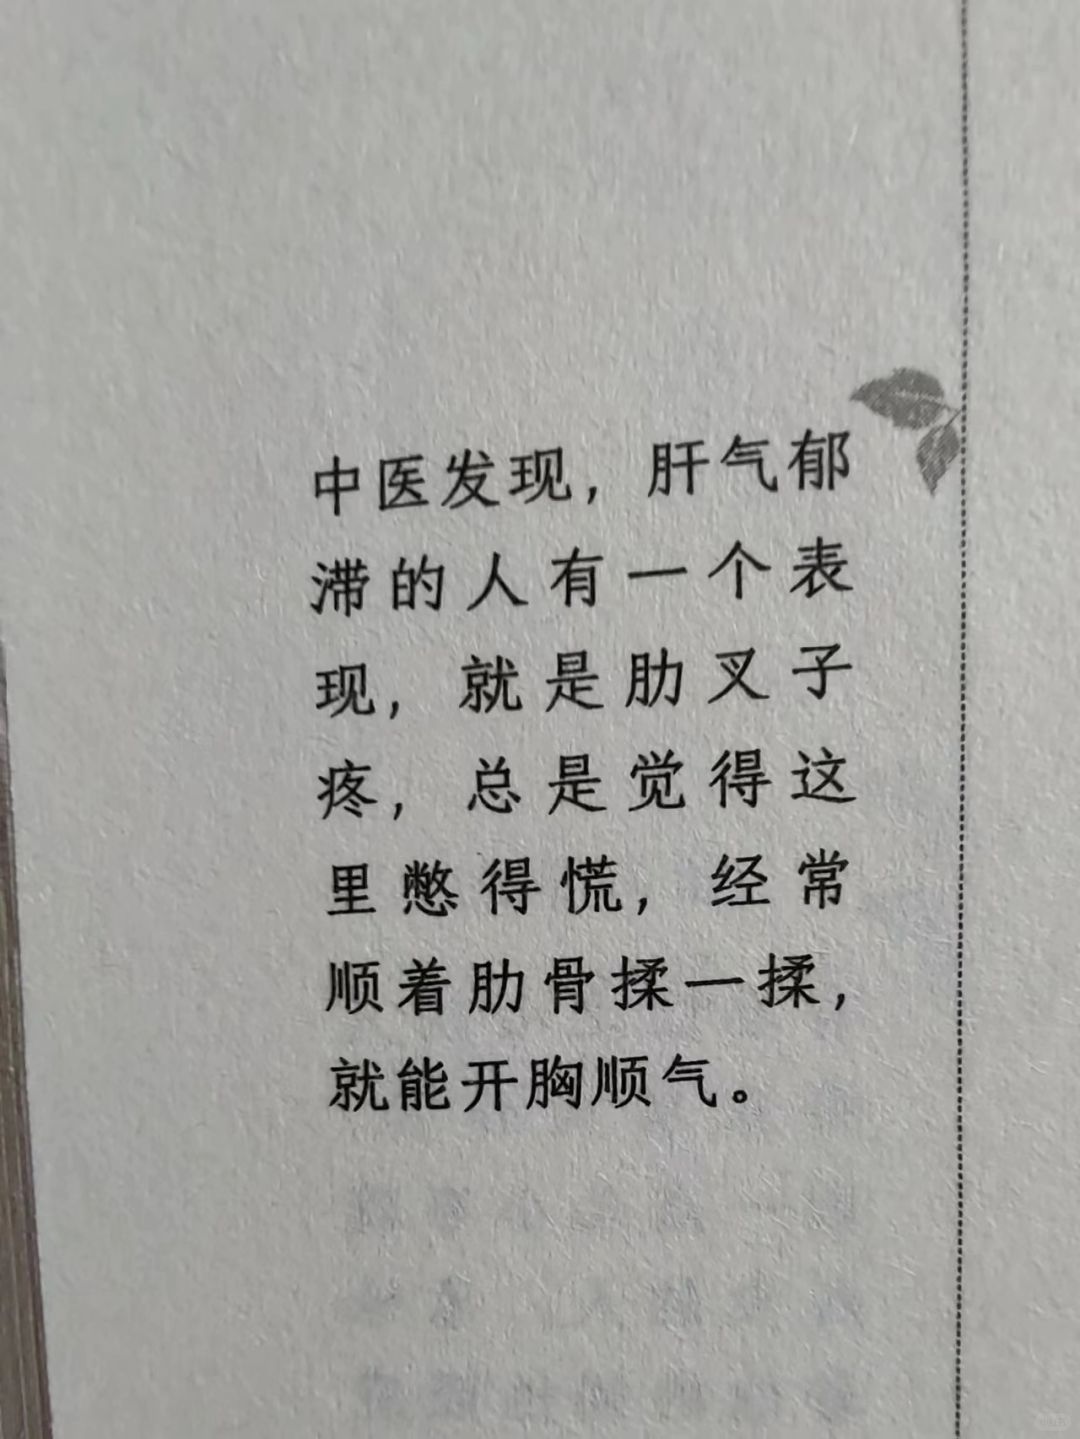 中医发现，肝气郁
滞的人有一个表
现，就是肋叉子
疼，总是觉得这
里憋得慌，经常
顺着肋骨揉一揉，
就能开胸顺气。